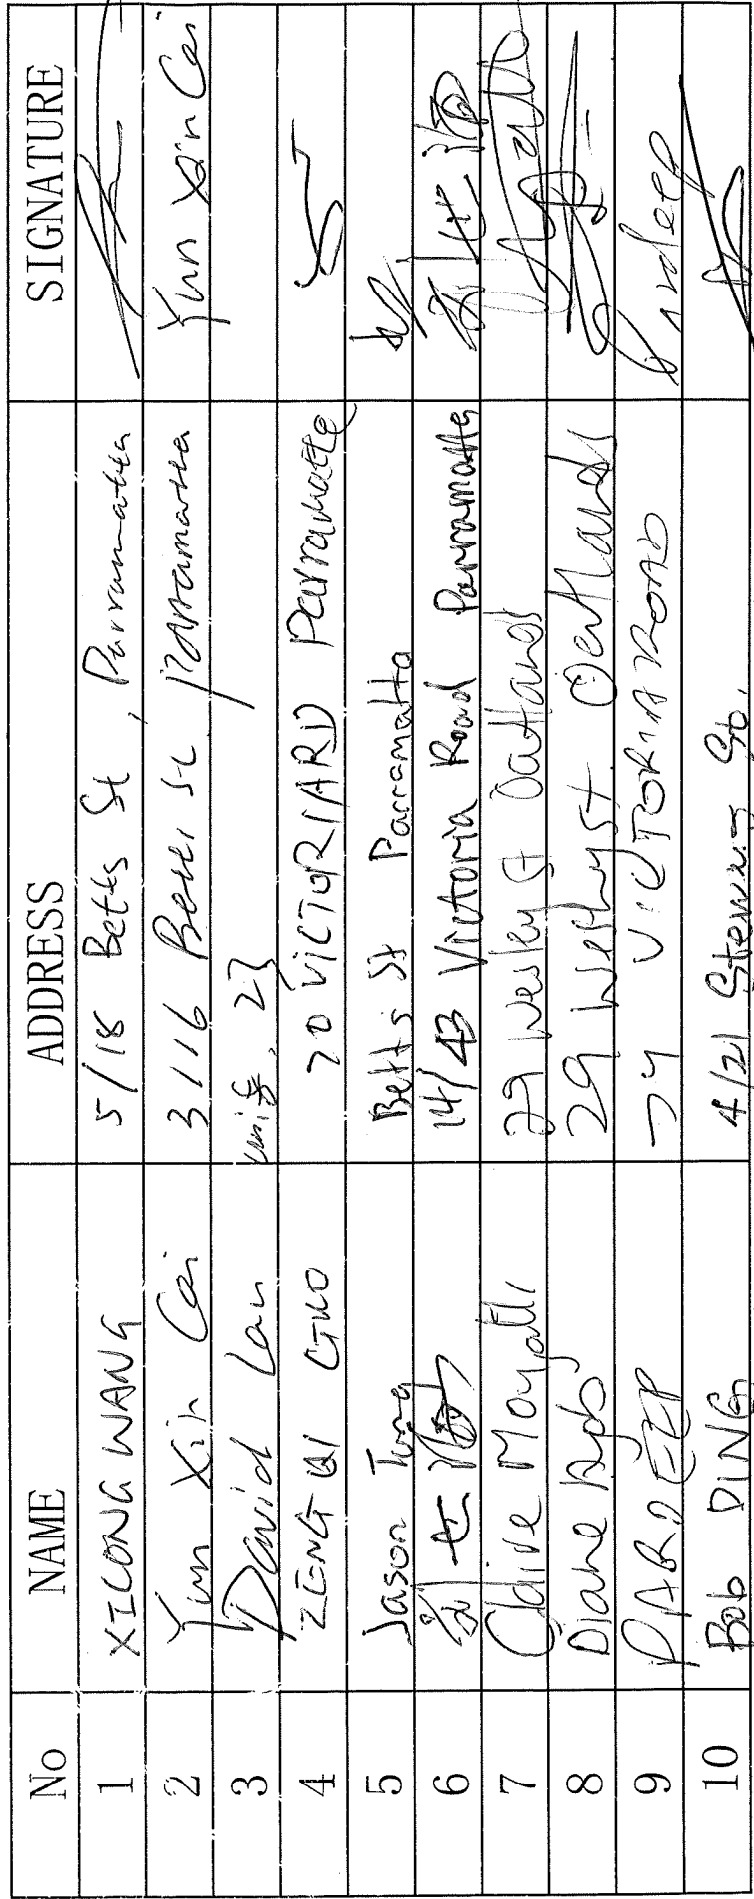 No NAME ADDRESS SIGNATURE
1 XICONG WANG 5/18 Betts St, Parramatta
2 Yun Xin Cai 3/16 Betts St Parramatta Yun Xin Cai
3 David Lau unit 23
4 ZENG QI GUO 70 VICTORIA RD Parramatta
5 Jason Tong Betts St Parramatta
6 刘 14/43 Victoria Road Parramatta 刘
7 Olive 29 Wesley St Oatlands
8 Diane 29 Wesley St Oatlands
9 PARDEEP 74 VICTORIA ROAD Pardeep
10 Bob DING 4/21 St.